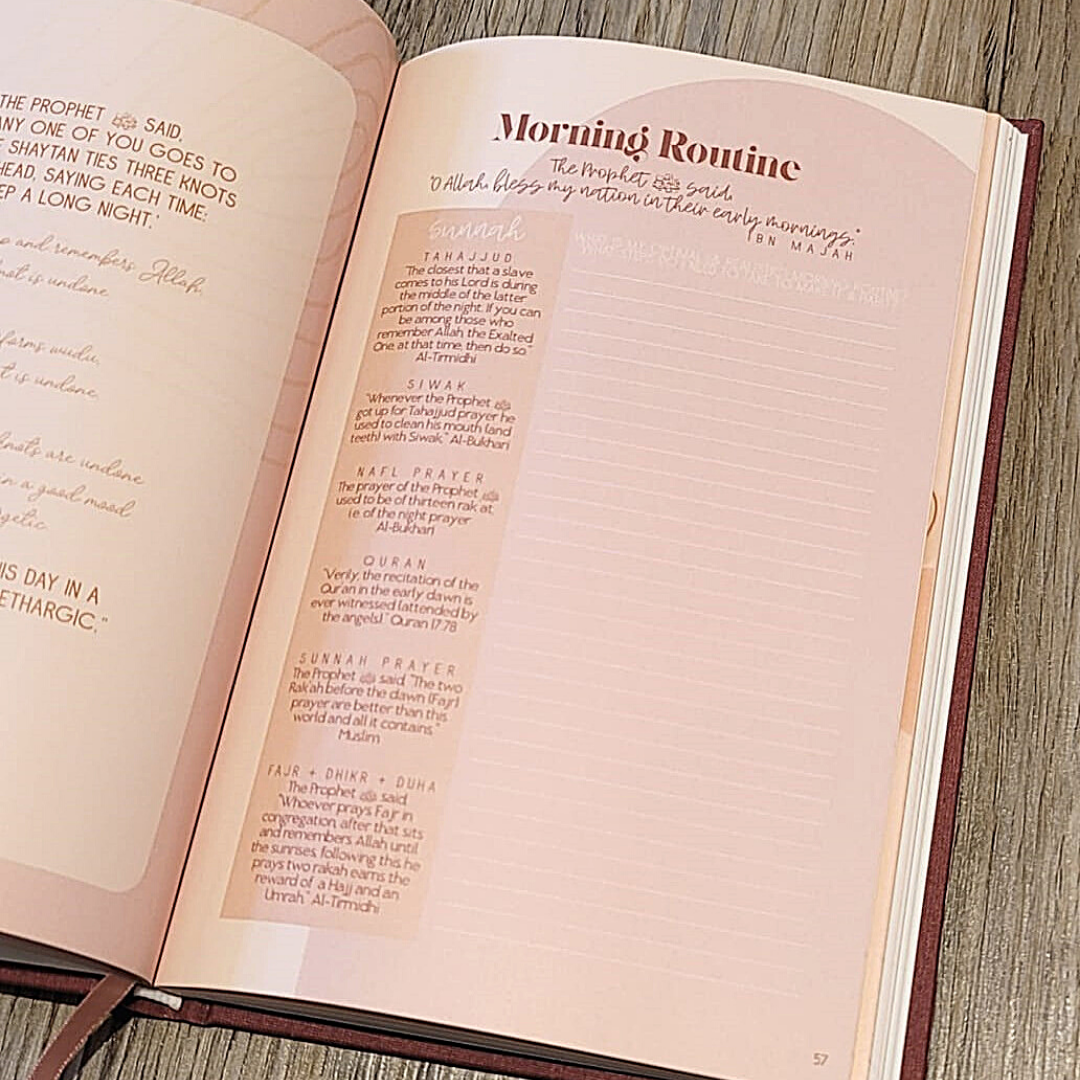 THE PROPHET ﷺ SAID,
ANY ONE OF YOU GOES TO
SHAYTAN TIES THREE KNOTS
HEAD, SAYING EACH TIME:
A LONG NIGHT.'
and remembers Allah,
knot is undone.
wudu,
is undone.
knots are undone
in a good mood
DAY IN A
LETHARGIC."
Morning Routine
The Prophet ﷺ said,
"O Allah, bless my nation in their early mornings."
IBN MAJAH
sunnah
TAHAJJUD
"The closest that a slave
comes to his Lord is during
the middle of the latter
portion of the night. If you can
be among those who
remember Allah the Exalted
One at that time, then do so."
Al-Tirmidhi
SIWAK
"Whenever the Prophet ﷺ
got up for Tahajjud prayer he
used to clean his mouth (and
teeth) with Siwak." Al-Bukhari
NAFL PRAYER
The prayer of the Prophet ﷺ
used to be of thirteen rak'at,
i.e. of the night prayer
Al-Bukhari
QURAN
"Verily, the recitation of the
Qur'an in the early dawn is
ever witnessed (attended by
the angels)." Quran 17:78
SUNNAH PRAYER
The Prophet ﷺ said, "The two
Rak'ah before the dawn (Fajr)
prayer are better than this
world and all it contains."
Muslim
FAJR + DHIKR + DUHA
The Prophet ﷺ said,
"Whoever prays Fajr in
congregation, after that sits
and remembers Allah until
the sunrises, following this he
prays two rakah earns the
reward of a Hajj and an
Umrah." Al-Tirmidhi
57